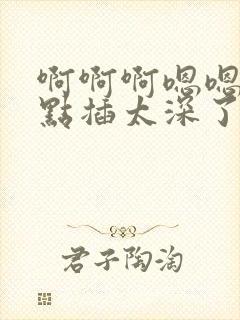 啊啊啊嗯嗯
點插太深了
君子陶淘